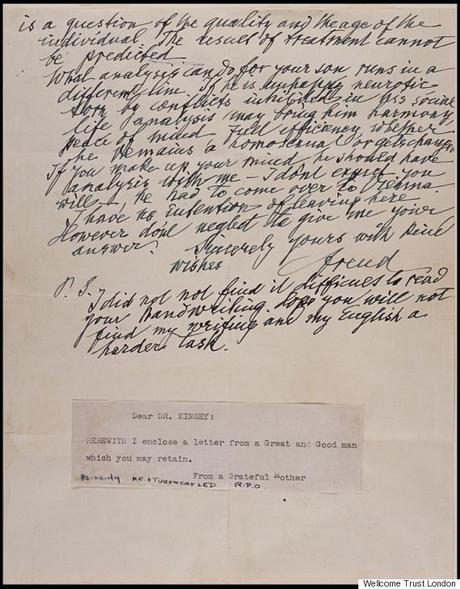 is a question of the quality and the age of the
individual. The result of treatment cannot
be predicted.
What analysis can do for your son runs in a
different line. If he is unhappy, neurotic,
torn by conflicts, inhibited in his social
life, analysis may bring him harmony,
peace of mind, full efficiency, whether
he remains a homosexual or gets changed.
If you make up your mind, he should have
analysis with me — I dont expect you
will —, he had to come over to Vienna.
I have no intention of leaving here.
However dont neglect to give me your
answer.
Sincerely yours with kind
wishes
Freud
P.S.
I did not not find it difficult to read
your handwriting. Hope you will not
find my writing and my English a
harder task.
Dear DR. KINSEY:
HEREWITH I enclose a letter from a Great and Good man
which you may retain.
From a Grateful Mother
R.P.O.
Wellcome Trust London